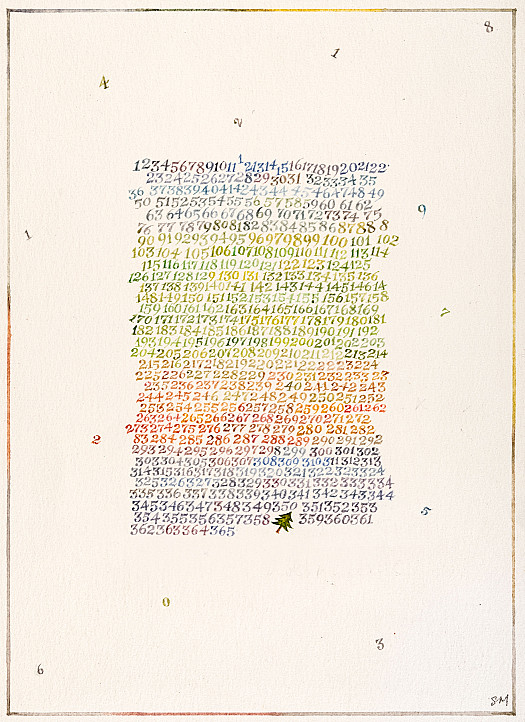 8
1
4
2
1234567891011 1213141516171819202122
232425262728293031 32333435
36 37383940414243444546474849
50 51525354555657585960 61 62
63 64656667686970717273 74 75
76 77 787980818283848586878889
9
90 919293949596979899 100 101 102
1
103 104 105106107108109110111112 113114
115116117118119120121122 123 124125
126127128129130131132133134135136
137138139140141142143144145146147
148149150151152153154155156157158
7
159160161162163164165166167168169
170171172173174175176177178179180181
182183184185186187188189190191192
193194195196197198199200201202203
204205206207208209210211212213214
215216217218219220221222223224
225226227228229230231232233234
235236237238239240241242243
244245246247248249250251252
253254255256257258259260261262
263264265266267268269270271272
273274275276277278279280281282
2
283284285286287288289290291292
293294295296297298299300301302
303304305306307308309310311312313
314315316317318319320321322323324
325326327328329330331332333334
335336337338339340341342343344
345346347348349350351352353
5
354355356357358 359360361
362363364365
0
3
6
S.M